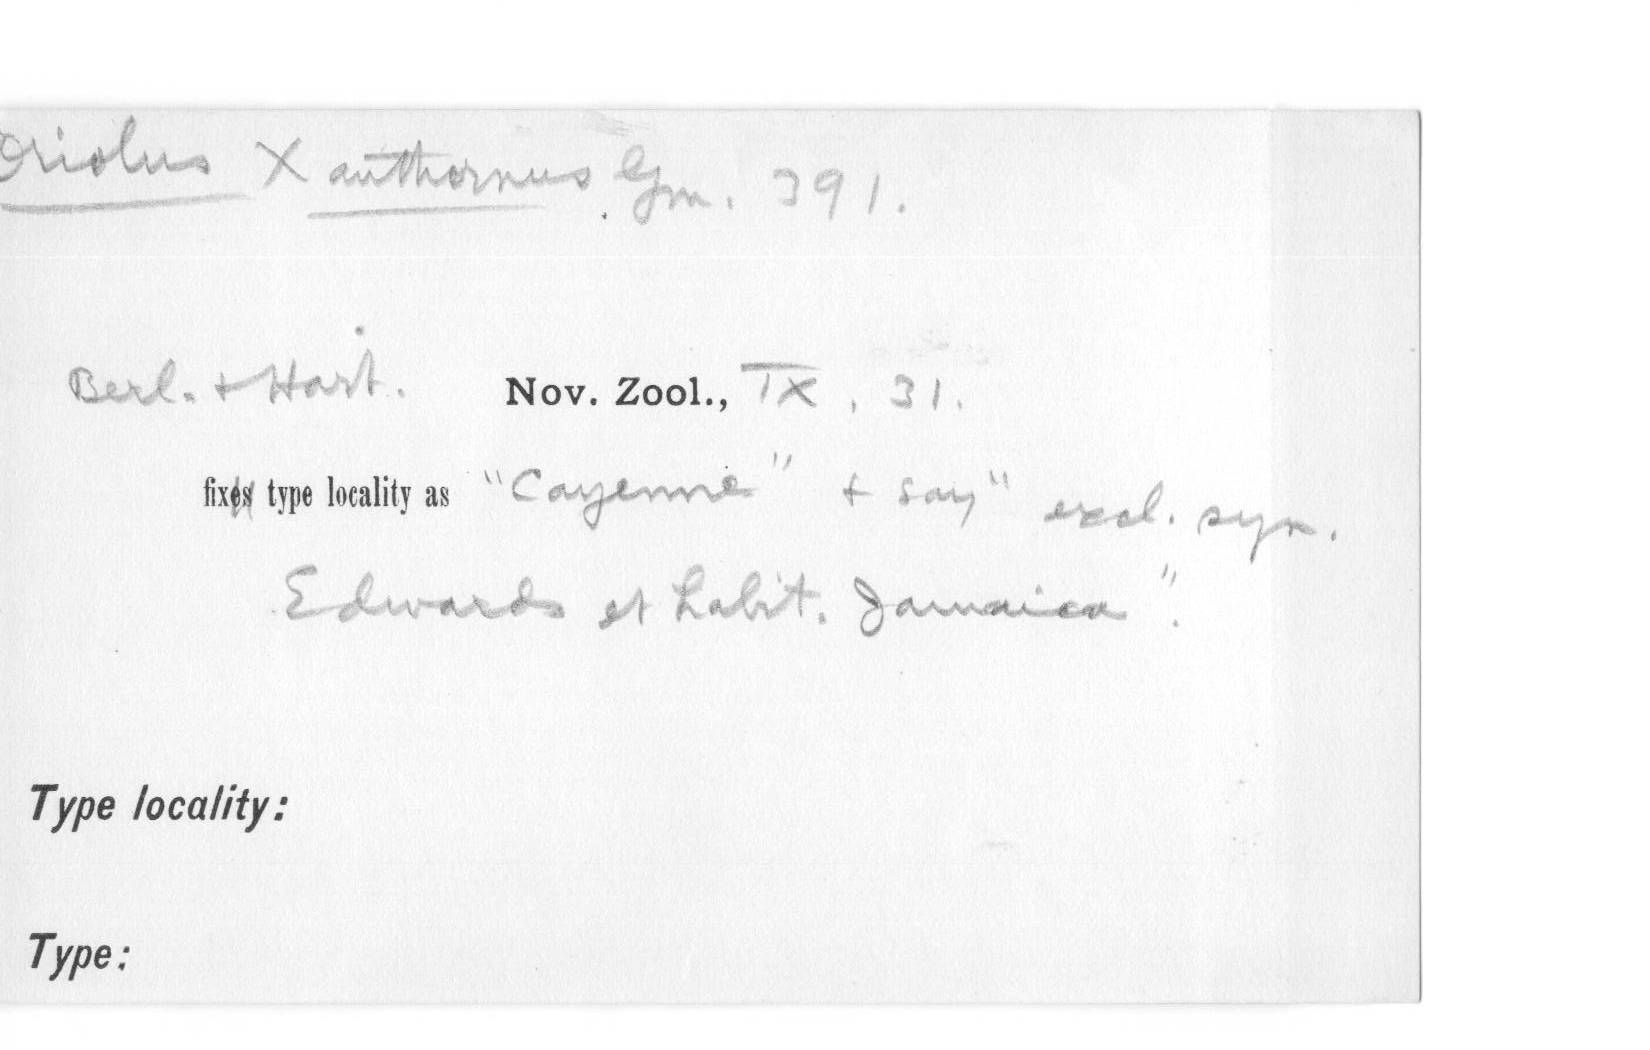 Oriolus Xanthornus Gm. 391.
Berl. + Hart. Nov. Zool., IX, 31.
fix type locality as "Cayenne" + say "excl. syn.
Edwards et habit. Jamaica".
Type locality:
Type: